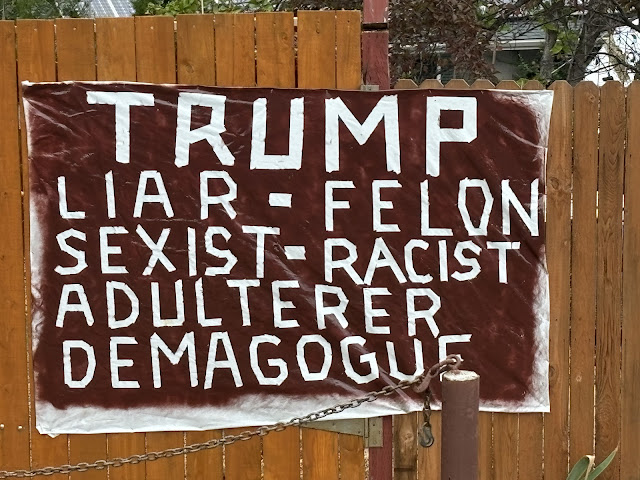 TRUMP
LIAR - FELON
SEXIST - RACIST
ADULTERER
DEMAGOGUE